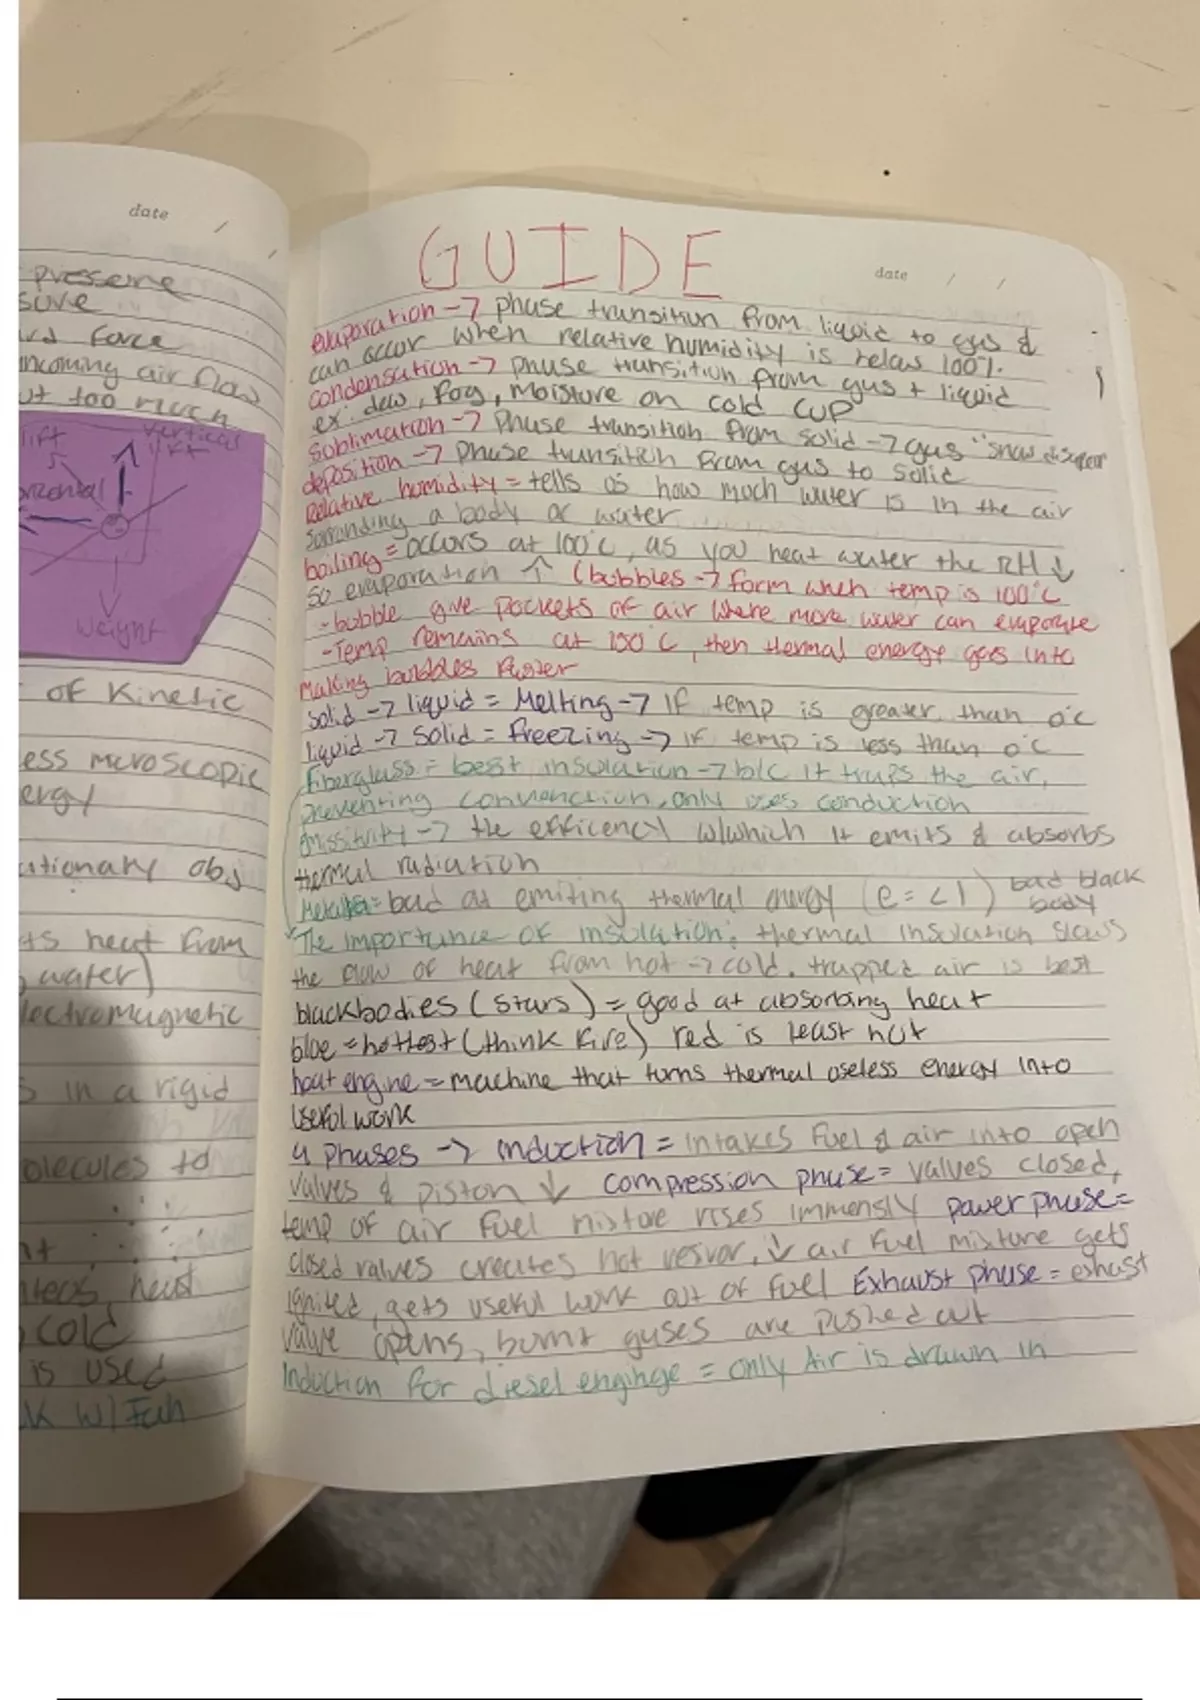 date / /
pressure
sure
rd force
incoming air flow
ut too much
lift
vertical
lift
orizontal
weight
of Kinetic
ess microscopic
ergy
ationary obj
ts heat from
water)
lectromagnetic
s in a rigid
olecules to
nt
nters, heat
cold
is used
k w/ Fuh
GUIDE
date / /
evaporation -> phase transition from liquid to gas &
can occur when relative humidity is below 100%.
condensation -> phase transition from gas + liquid
ex: dew, fog, moisture on cold cup
sublimation -> Phase transition from solid -> gas "snow disapear
deposition -> phase transition from gas to solid
Relative humidity = tells us how much water is in the air
sorronding a body of water
boiling = occurs at 100°C, as you heat water the RH ↓
so evaporation ↑ (bubbles -> form when temp is 100°C
- bubble give pockets of air where more water can evaporate
- Temp remains at 100°C, then thermal energy goes into
making bubbles faster
solid -> liquid = Melting -> if temp is greater than 0°C
liquid -> solid = freezing -> if temp is less than 0°C
Fiberglass = best insulation -> b/c it traps the air,
preventing convenction, only uses conduction
Emissitivity -> the efficency w/which it emits & absorbs
thermal radiation
= bad at emiting thermal energy (e = <1) bad black
body
The importance of insulation: thermal insulation slows
the flow of heat from hot -> cold. trapped air is best
blackbodies (stars) = good at absorbing heat
blue = hottest (think fire) red is least hot
heat engine = machine that turns thermal useless energy into
useful work
4 phases -> induction = intakes fuel & air into open
valves & piston ↓ compression phase = valves closed,
temp of air fuel mixture rises immensly power phase =
closed valves creates hot resvor, ↓ air fuel mixture gets
ignited, gets useful work out of fuel Exhaust phase = exhast
valve opens, burnt gases are pushed out
Induction for diesel enginge = only Air is drawn in